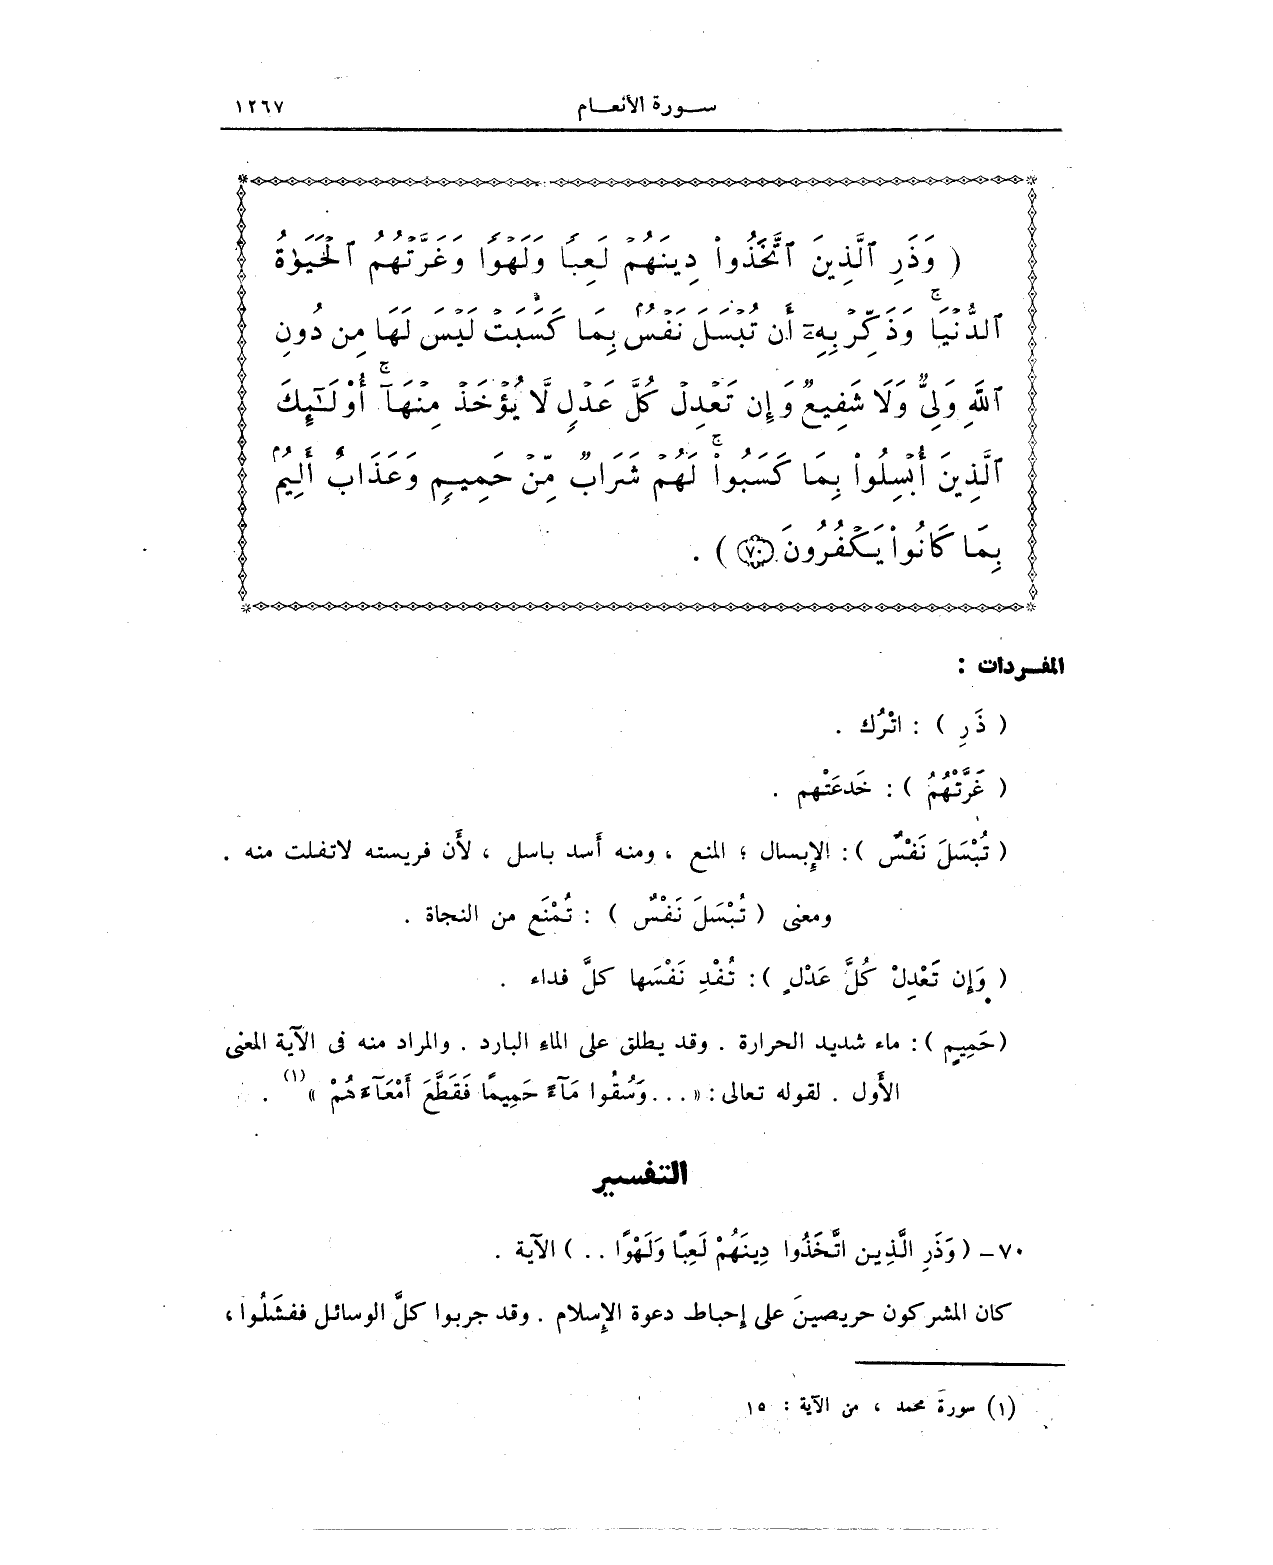 سـورة الأنعـام ١٢٦٧
( وَذَرِ ٱلَّذِينَ ٱتَّخَذُواْ دِينَهُمۡ لَعِبٗا وَلَهۡوٗا وَغَرَّتۡهُمُ ٱلۡحَيَوٰةُ
ٱلدُّنۡيَاۚ وَذَكِّرۡ بِهِۦٓ أَن تُبۡسَلَ نَفۡسُۢ بِمَا كَسَبَتۡ لَيۡسَ لَهَا مِن دُونِ
ٱللَّهِ وَلِيّٞ وَلَا شَفِيعٞ وَإِن تَعۡدِلۡ كُلَّ عَدۡلٖ لَّا يُؤۡخَذۡ مِنۡهَآۚ أُوْلَٰٓئِكَ
ٱلَّذِينَ أُبۡسِلُواْ بِمَا كَسَبُواْۚ لَهُمۡ شَرَابٞ مِّنۡ حَمِيمٖ وَعَذَابٌ أَلِيمُۢ
بِمَا كَانُواْ يَكۡفُرُونَ ٧٠ ) .
المفـردات :
( ذَرِ ) : اتْرُك .
( غَرَّتْهُمُ ) : خَدعَتْهم .
( تُبْسَلَ نَفْسٌ ) : الإبسال ؛ المنع ، ومنه أَسد باسل ، لأَن فريسته لاتفلت منه .
ومعنى ( تُبْسَلَ نَفْسٌ ) : تُمْنَع من النجاة .
( وَإِن تَعْدِلْ كُلَّ عَدْلٍ ) : تُفْدِ نَفْسَها كلَّ فداء .
( حَمِيمٍ ) : ماء شديد الحرارة . وقد يطلق على الماءِ البارد . والمراد منه فى الآية المعنى
الأَول . لقوله تعالى : « ... وَسُقُوا مَآءً حَمِيمًا فَقَطَّعَ أَمْعَآءَهُمْ » (١) .
التفسير
٧٠ – ( وَذَرِ الَّذِين اتَّخَذُوا دِينَهُمْ لَعِبًا وَلَهْوًا .. ) الآية .
كان المشركون حريصينَ على إحباط دعوة الإسلام . وقد جربوا كلَّ الوسائل ففشَلُوا ،
(١) سورة محمد ، من الآية : ١٥